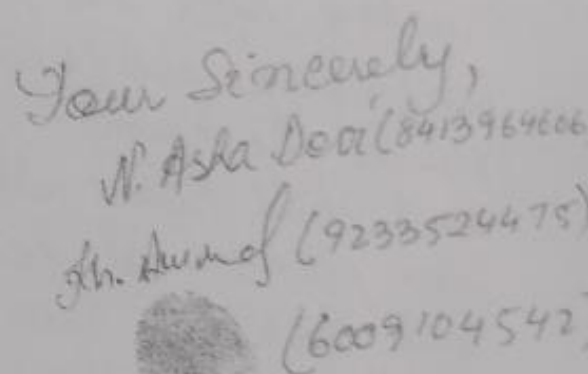 Your Sincerely,
N. Asha Devi (8413964606
Kh. (9233524475)
(6009104542)